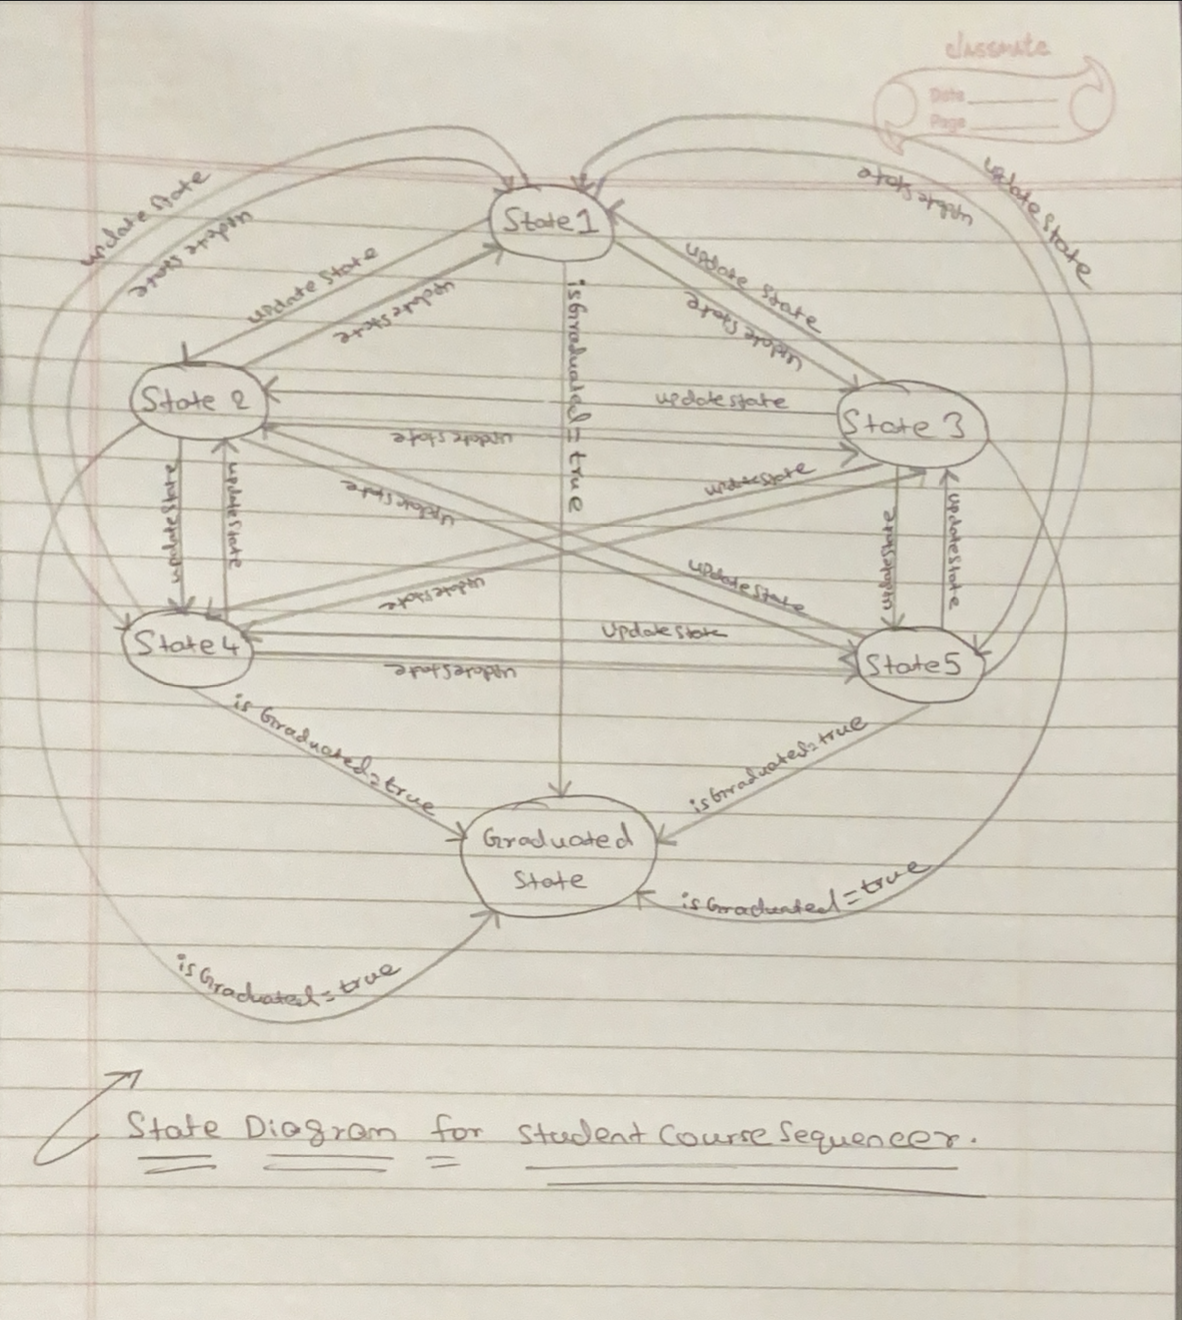 classmate
Date
Page
updateState
updateState
updateState
updateState
State 1
updateState
updateState
updateState
updateState
isGraduated = true
State 2
updateState
State 3
updateState
updateState
updateState
updateState
updateState
updateState
updateState
updateState
updateState
State 4
UpdateState
State 5
updateState
is Graduated = true
isGraduated = true
Graduated
State
isGraduated = true
isGraduated = true
State Diagram for Student Course Sequencer.